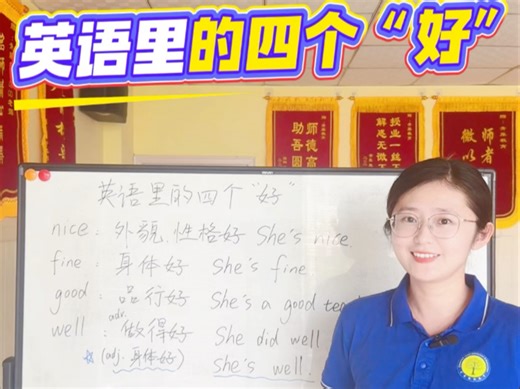 英语里的四个“好”
师德高
助吾圆
授业一丝
解惑无微
师者
微以
英语里的四个"好"
nice: 外貌,性格好 She's nice
fine: 身体好 She's fine
good: 品行好 She's a good
adv.
well: 做得好 She did well
☆(adj. 身体好) she's well.